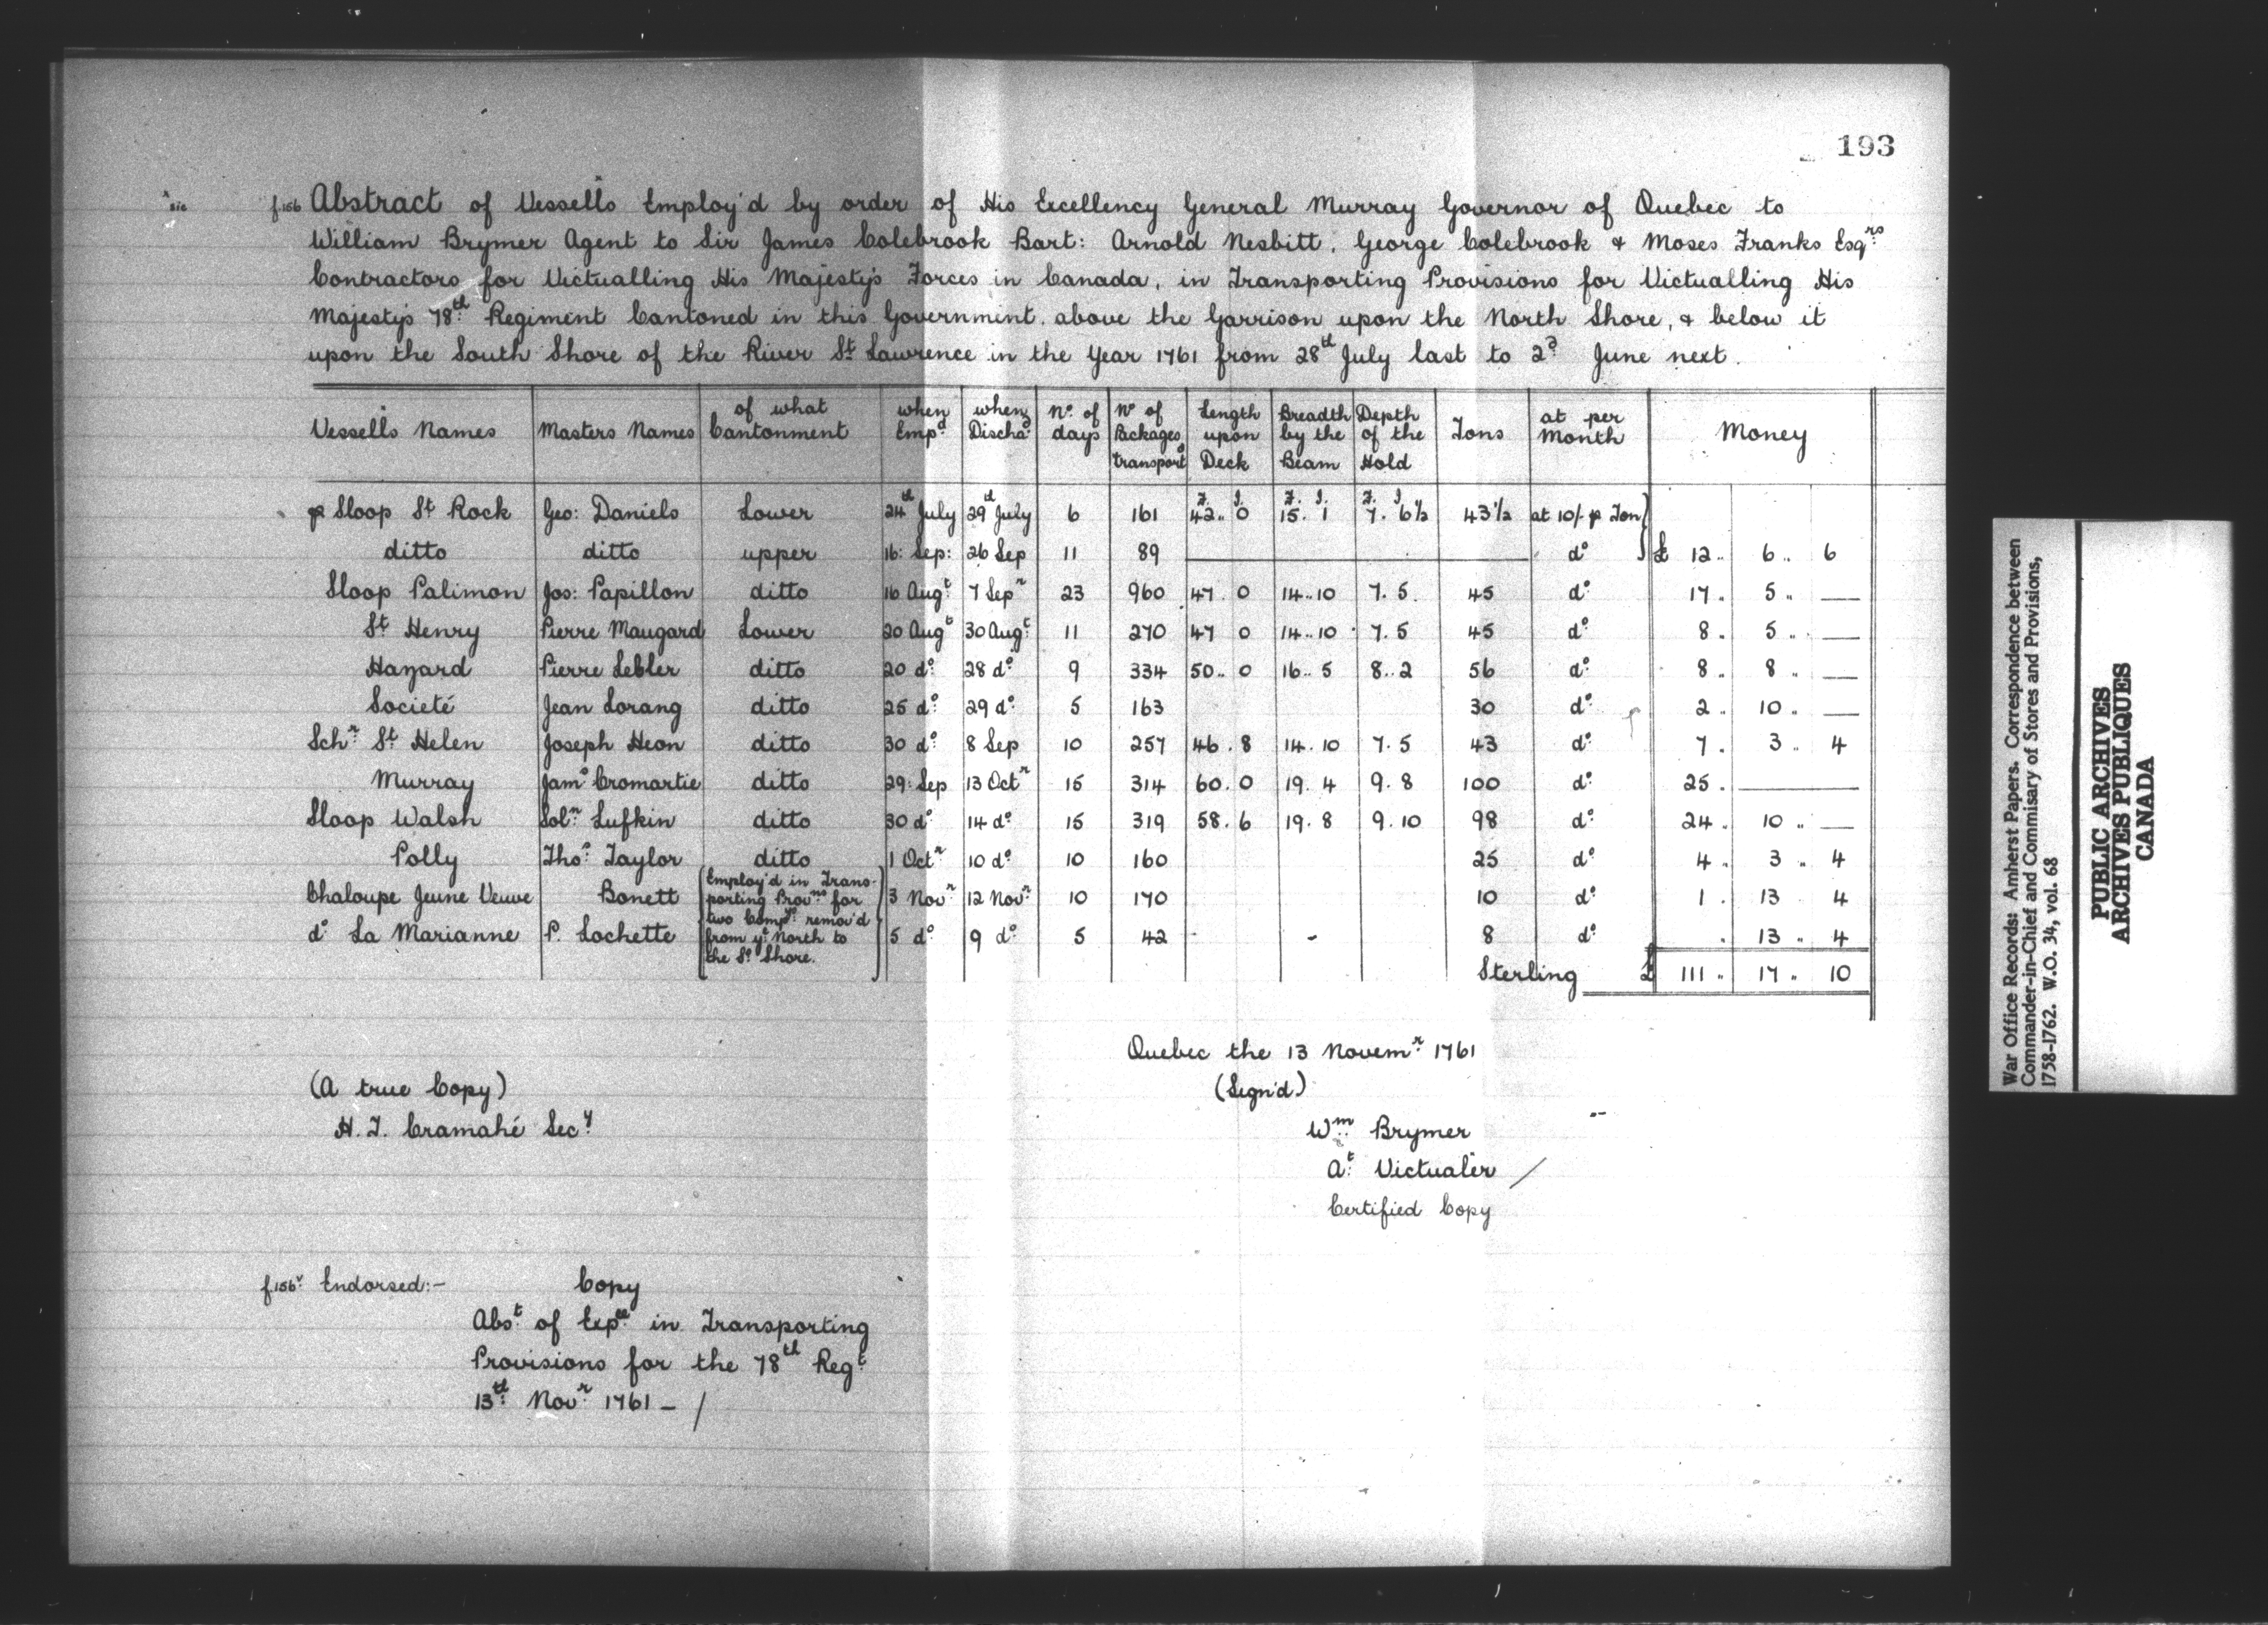 193
* sic
f.156 Abstract of Vessells* Employ'd by order of His Excellency General Murray Governor of Quebec to
William Brymer Agent to Sir James Colebrook Bart: Arnold Nesbitt, George Colebrook & Moses Franks Esqrs
Contractors for Victualling His Majestys Forces in Canada, in Transporting Provisions for Victualling His
Majestys 78th Regiment Cantoned in this Government, above the Garrison upon the North Shore, & below it
upon the South Shore of the River St Lawrence in the Year 1761 from 28th July last to 2d June next.
Vessells Names | Masters Names | of what Cantonment | when Empd | when Dischad | No. of days | No of Packages transportd | Length upon Deck | Breadth by the Beam | Depth of the Hold | Tons | at per Month | Money
F. I. | F. I. | F. I.
p Sloop St Rock | Geo: Daniels | Lower | 24th July | 29th July | 6 | 161 | 42.. 0 | 15. 1 | 7. 6½ | 43½ | at 10/- p Ton
ditto | ditto | upper | 16: Sep: | 26 Sep | 11 | 89 | do | £ 12.. 6.. 6
Sloop Palimon | Jos: Papillon | ditto | 16 Augt | 7 Sepr | 23 | 960 | 47. 0 | 14..10 | 7. 5. | 45 | do | 17. 5 „ —
St Henry | Pierre Maugard | Lower | 20 Augt | 30 Augt | 11 | 270 | 47 0 | 14..10 | 7. 5 | 45 | do | 8. 5 „ —
Hazard | Pierre Lebler | ditto | 20 do | 28 do | 9 | 334 | 50.. 0 | 16.. 5 | 8..2 | 56 | do | 8. 8 „ —
Societé | Jean Lorang | ditto | 25 do | 29 do | 5 | 163 | 30 | do | 2. 10 „ —
Schr St Helen | Joseph Heon | ditto | 30 do | 8 Sep | 10 | 257 | 46. 8 | 14.10 | 7. 5 | 43 | do | 7. 3.. 4
Murray | Jams Cromartie | ditto | 29: Sep | 13 Octr | 15 | 314 | 60. 0 | 19. 4 | 9. 8 | 100 | do | 25. —
Sloop Walsh | Soln Lufkin | ditto | 30 do | 14 do | 15 | 319 | 58. 6 | 19. 8 | 9. 10 | 98 | do | 24. 10 „ —
Polly | Thos Taylor | ditto | 1 Octr | 10 do | 10 | 160 | 25 | do | 4 „ 3 „ 4
Chaloupe Jeune Veuve | Bonett | Employ'd in Trans-porting Provns for two Compys remov'd from ye North to the So Shore. | 3 Novr | 12 Novr | 10 | 170 | 10 | do | 1. 13 . 4
do La Marianne | P. Lochette | 5 do | 9 do | 5 | 42 | - | - | 8 | do | . 13 „ 4
Sterling £ 111 „ 17 „ 10
Quebec the 13 Novemr 1761
(Sign'd)
Wm Brymer
At Victualer /
Certified Copy
(A true Copy)
H. T. Cramahé Secy
f.156v Endorsed:- Copy
Abst of Expce in Transporting
Provisions for the 78th Regt
13th Novr 1761 - /
War Office Records: Amherst Papers. Correspondence between
Commander-in-Chief and Commisary of Stores and Provisions,
1758-1762. W.O. 34, vol. 68
PUBLIC ARCHIVES
ARCHIVES PUBLIQUES
CANADA